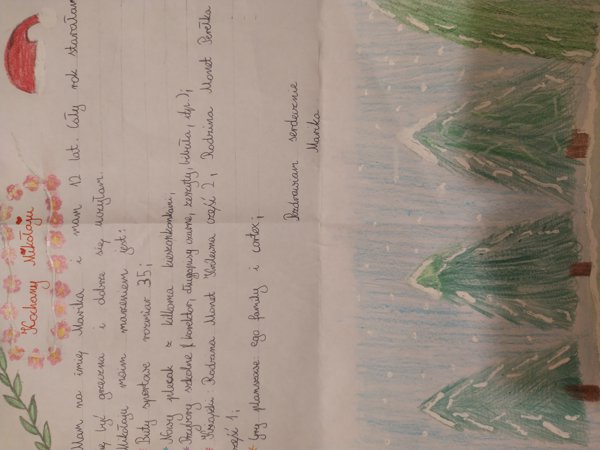 Kochany Mikołaju
Mam na imię Marika i mam 12 lat. Cały rok starałam
się być grzeczna i dobrze się uczyłam.
Mikołaju moim marzeniem jest:
Buty sportowe rozmiar 35;
Nowy plecak z kilkoma kieszonkami;
Przybory szkolne (korektor, długopisy czarne, zeszyty, bibuła, itp.);
Książki: Rodzina Monet Królewna część 2, Rodzina Monet Perełka
część 1;
Gry planszowe ego family i cortex;
Pozdrawiam serdecznie
Marika